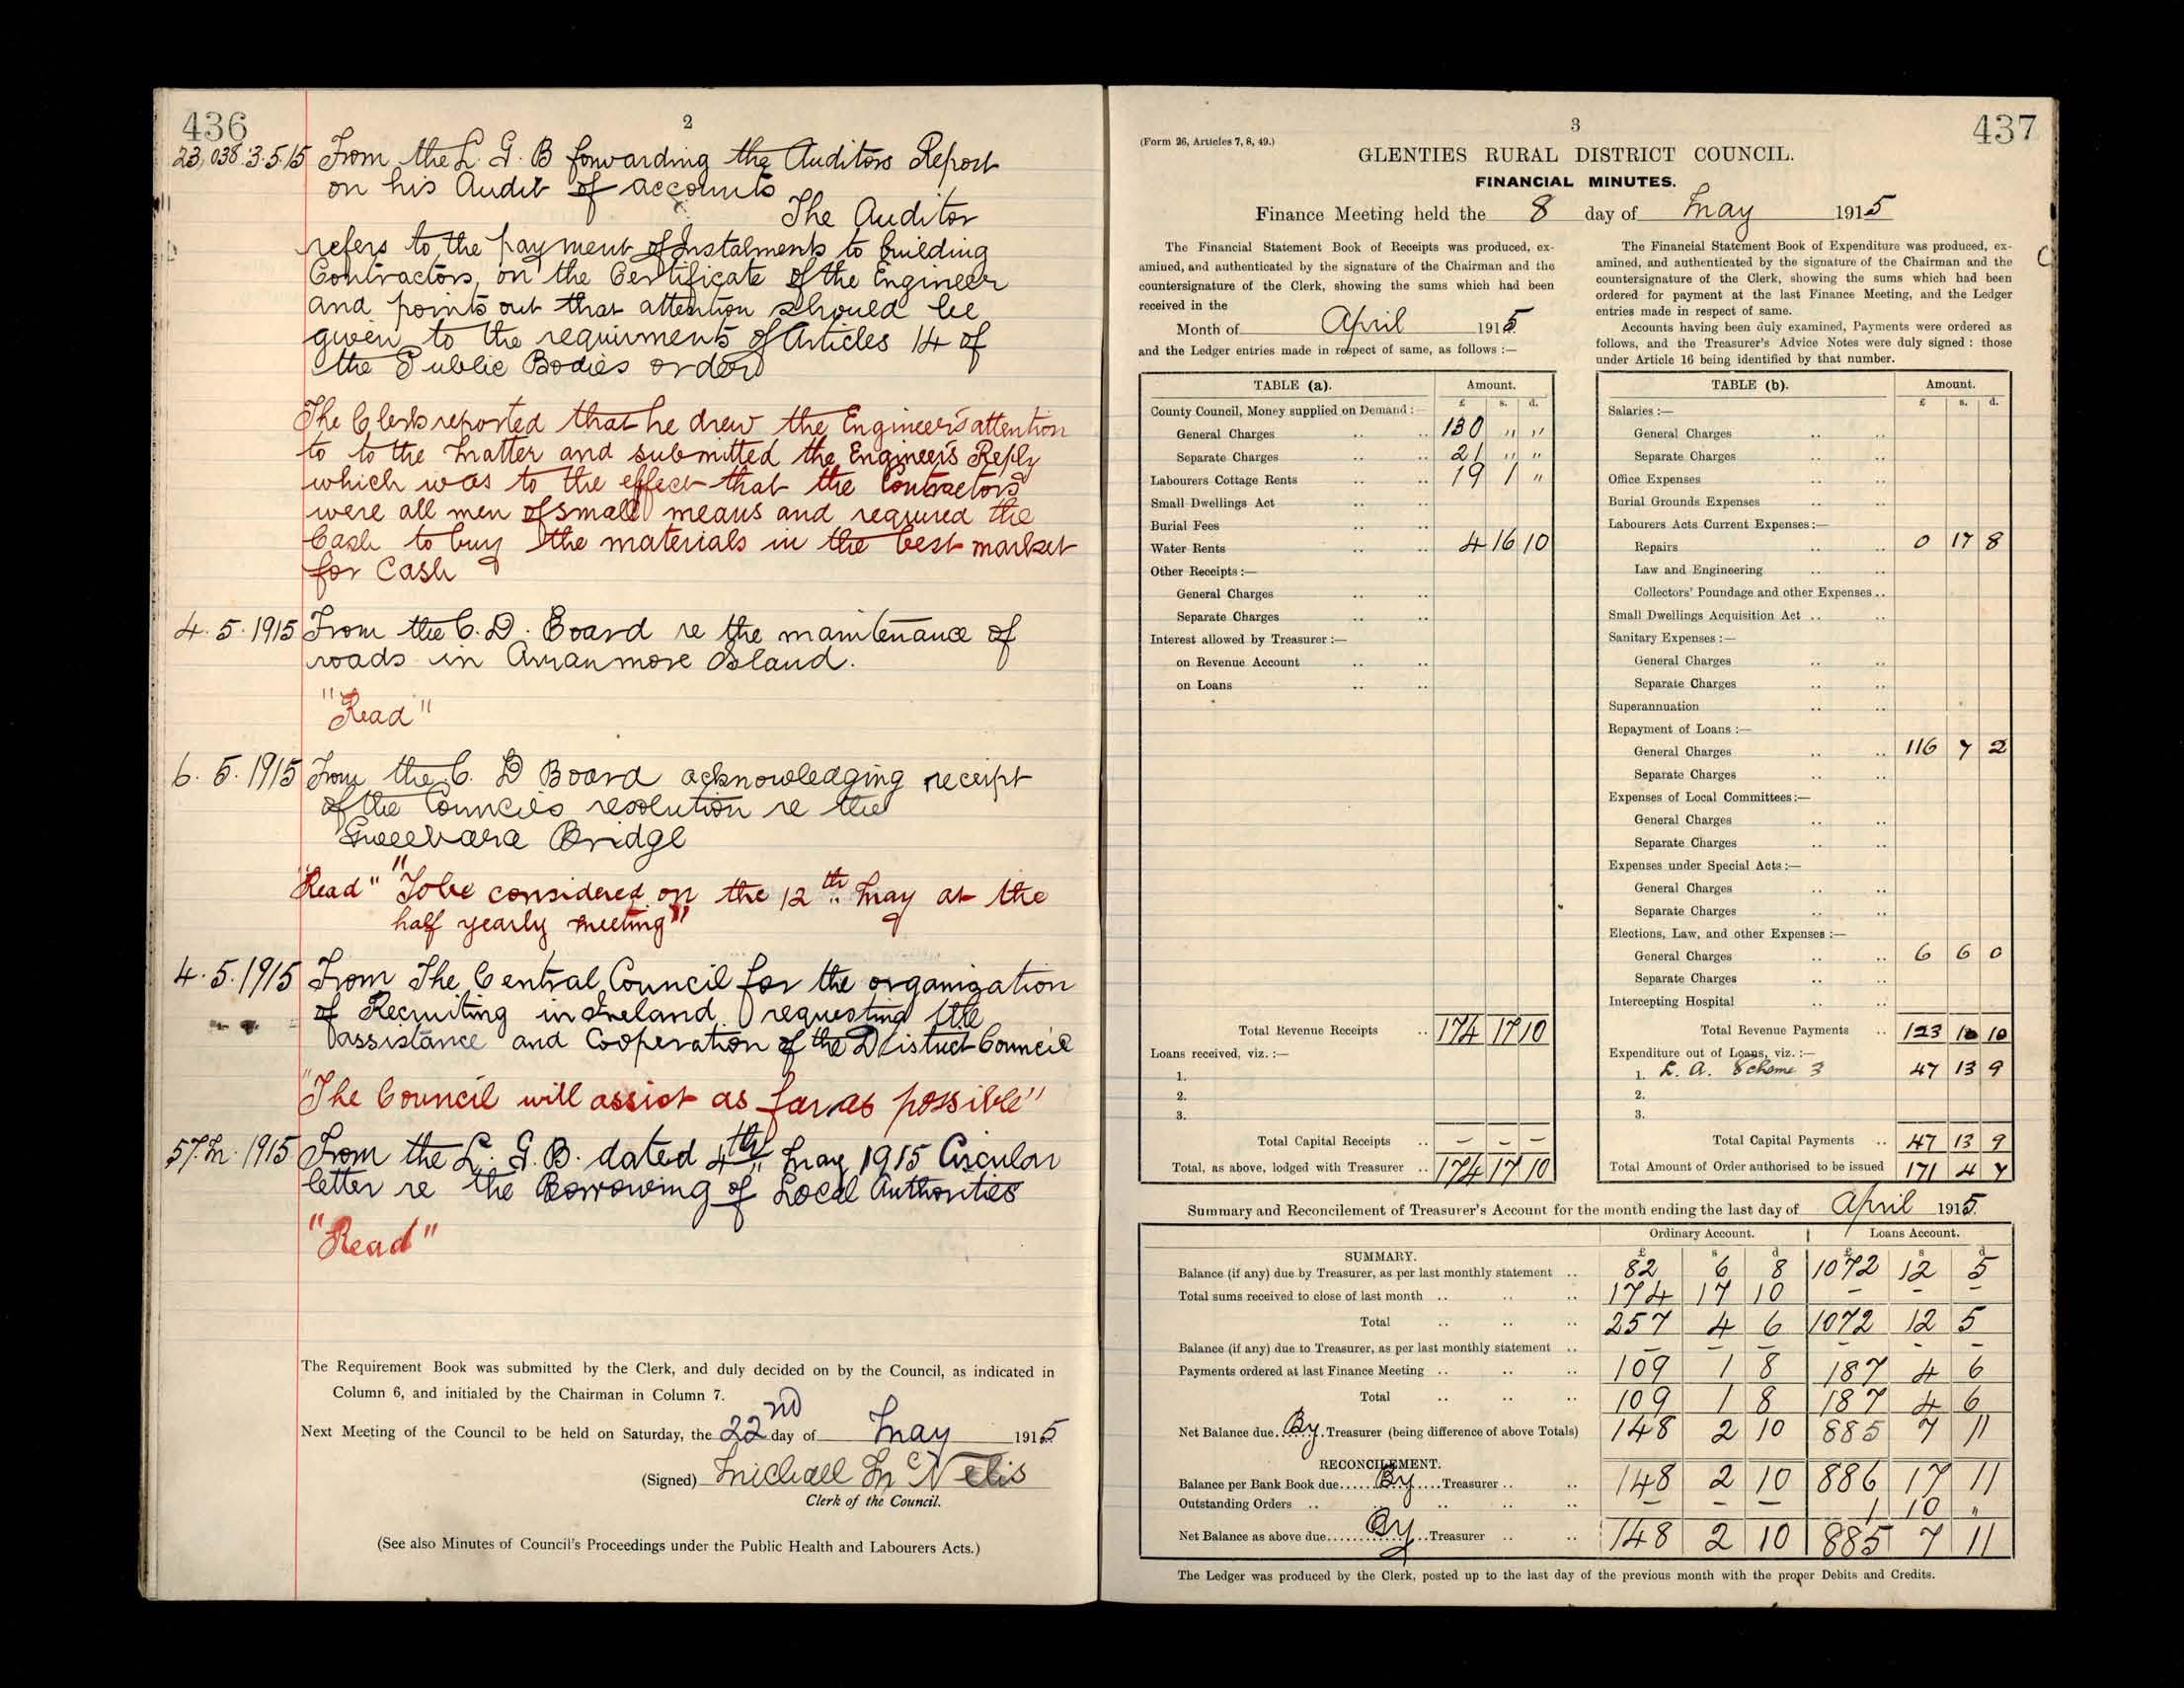 436
2
23,038.3.5.15 From the L. G. B forwarding the Auditors Report
on his Audit of accounts
The Auditor
refers to the payment of Instalments to building
Contractors, on the Certificate of the Engineer
and points out that attention should be
given to the requirments of Articles 14 of
the Public Bodies order
The Clerk reported that he drew the Engineer's attention
to to the Matter and submitted the Engineer's Reply
which was to the effect that the Contractors
were all men of small means and required the
Cash to buy the materials in the best market
for Cash
4.5.1915 From the C.D. Board re the maintenance of
roads in Arranmore Island.
"Read"
6.5.1915 From the C. D Board acknowledging receipt
of the Councils resolution re the
Gweebara Bridge
"Read" "To be considered on the 12th May at the
half yearly meeting"
4.5.1915 From The Central Council for the organization
of Recruiting in Ireland requesting the
assistance and Cooperation of the District Council
"The Council will assist as far as possible"
57.M.1915 From the L. G. B. dated 4th May 1915 Circular
letter re the Borrowing of Local Authorities
"Read"
The Requirement Book was submitted by the Clerk, and duly decided on by the Council, as indicated in
Column 6, and initialed by the Chairman in Column 7.
Next Meeting of the Council to be held on Saturday, the 22nd day of May 1915
(Signed) Michael McNelis
Clerk of the Council.
(See also Minutes of Council's Proceedings under the Public Health and Labourers Acts.)
3
437
(Form 26, Articles 7, 8, 49.)
GLENTIES RURAL DISTRICT COUNCIL.
FINANCIAL MINUTES.
Finance Meeting held the 8 day of May 1915
The Financial Statement Book of Receipts was produced, ex-
amined, and authenticated by the signature of the Chairman and the
countersignature of the Clerk, showing the sums which had been
received in the
Month of April 1915
and the Ledger entries made in respect of same, as follows :—
TABLE (a). Amount.
£ s. d.
County Council, Money supplied on Demand :—
General Charges .. .. 130 " "
Separate Charges .. .. 21 " "
Labourers Cottage Rents .. .. 19 1 "
Small Dwellings Act .. ..
Burial Fees .. ..
Water Rents .. .. 4 16 10
Other Receipts :—
General Charges .. ..
Separate Charges .. ..
Interest allowed by Treasurer :—
on Revenue Account .. ..
on Loans .. ..
Total Revenue Receipts .. 174 17 10
Loans received, viz. :—
1.
2.
3.
Total Capital Receipts .. — — —
Total, as above, lodged with Treasurer .. 174 17 10
The Financial Statement Book of Expenditure was produced, ex-
amined, and authenticated by the signature of the Chairman and the
countersignature of the Clerk, showing the sums which had been
ordered for payment at the last Finance Meeting, and the Ledger
entries made in respect of same.
Accounts having been duly examined, Payments were ordered as
follows, and the Treasurer's Advice Notes were duly signed : those
under Article 16 being identified by that number.
TABLE (b). Amount.
£ s. d.
Salaries :—
General Charges .. ..
Separate Charges .. ..
Office Expenses .. ..
Burial Grounds Expenses .. ..
Labourers Acts Current Expenses :—
Repairs .. .. 0 17 8
Law and Engineering .. ..
Collectors' Poundage and other Expenses ..
Small Dwellings Acquisition Act .. ..
Sanitary Expenses :—
General Charges .. ..
Separate Charges .. ..
Superannuation .. ..
Repayment of Loans :—
General Charges .. .. 116 7 2
Separate Charges .. ..
Expenses of Local Committees :—
General Charges .. ..
Separate Charges .. ..
Expenses under Special Acts :—
General Charges .. ..
Separate Charges .. ..
Elections, Law, and other Expenses :—
General Charges .. .. 6 6 0
Separate Charges .. ..
Intercepting Hospital .. ..
Total Revenue Payments .. 123 10 10
Expenditure out of Loans, viz. :—
1. L. A. Scheme 3 47 13 9
2.
3.
Total Capital Payments .. 47 13 9
Total Amount of Order authorised to be issued 171 4 7
Summary and Reconcilement of Treasurer's Account for the month ending the last day of April 1915.
Ordinary Account. Loans Account.
SUMMARY. £ s d £ s d
Balance (if any) due by Treasurer, as per last monthly statement .. 82 6 8 1072 12 5
Total sums received to close of last month .. .. .. 174 17 10 — — —
Total .. .. .. 257 4 6 1072 12 5
Balance (if any) due to Treasurer, as per last monthly statement .. — — — — — —
Payments ordered at last Finance Meeting .. .. .. 109 1 8 187 4 6
Total .. .. .. 109 1 8 187 4 6
Net Balance due By Treasurer (being difference of above Totals) 148 2 10 885 7 11
RECONCILEMENT.
Balance per Bank Book due By Treasurer .. .. 148 2 10 886 17 11
Outstanding Orders .. .. .. .. — — — 1 10 "
Net Balance as above due By Treasurer .. .. 148 2 10 885 7 11
The Ledger was produced by the Clerk, posted up to the last day of the previous month with the proper Debits and Credits.